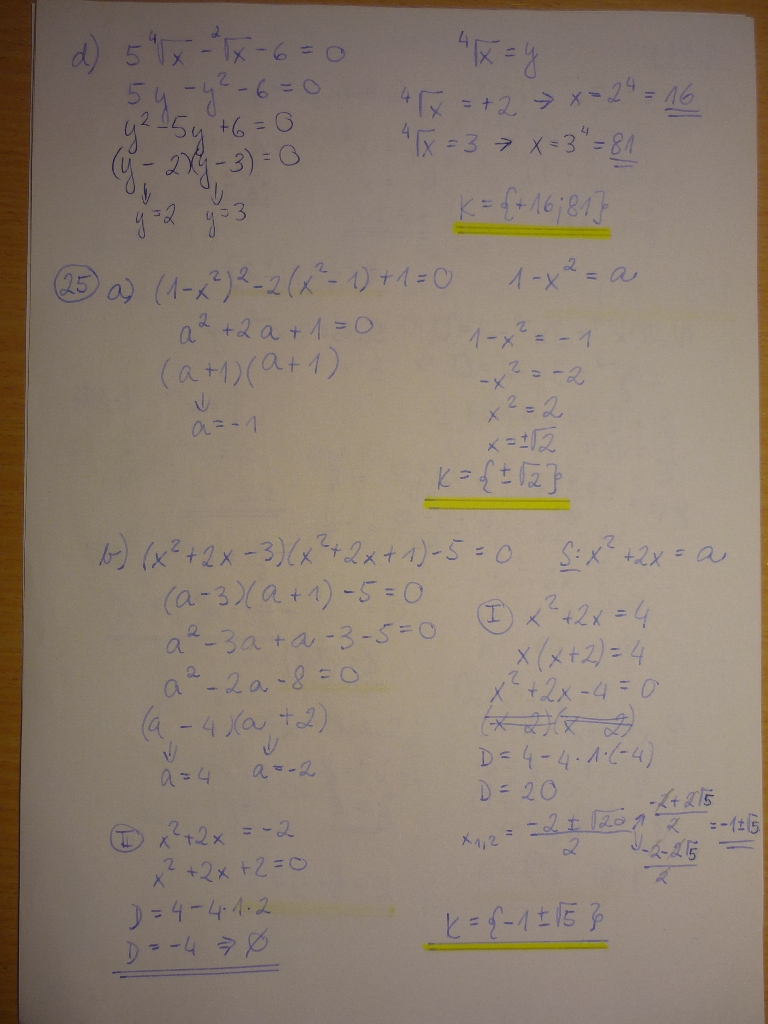 d) 5⁴√x - ²√x - 6 = 0
⁴√x = y
5y - y² - 6 = 0
⁴√x = +2 → x = 2⁴ = 16
y² - 5y + 6 = 0
⁴√x = 3 → x = 3⁴ = 81
(y - 2)(y - 3) = 0
y = 2 y = 3
K = {+16; 81}
25 a) (1-x²)² - 2(x² - 1) + 1 = 0
1 - x² = a
a² + 2a + 1 = 0
(a + 1)(a + 1)
a = -1
1 - x² = -1
-x² = -2
x² = 2
x = ±√2
K = {±√2}
b) (x² + 2x - 3)(x² + 2x + 1) - 5 = 0
S: x² + 2x = a
(a - 3)(a + 1) - 5 = 0
a² - 3a + a - 3 - 5 = 0
a² - 2a - 8 = 0
(a - 4)(a + 2)
a = 4 a = -2
I x² + 2x = 4
x(x + 2) = 4
x² + 2x - 4 = 0
(x 2)(x 2)
D = 4 - 4·1·(-4)
D = 20
x₁,₂ = (-2 ± √20)/2 ↗ (-2 + 2√5)/2 ↓ (-2 - 2√5)/2 = -1 ± √5
II x² + 2x = -2
x² + 2x + 2 = 0
D = 4 - 4·1·2
D = -4 ⇒ ∅
K = {-1 ± √5}